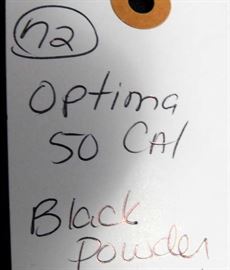 n2
Optima
50 CAl
Black
Powder